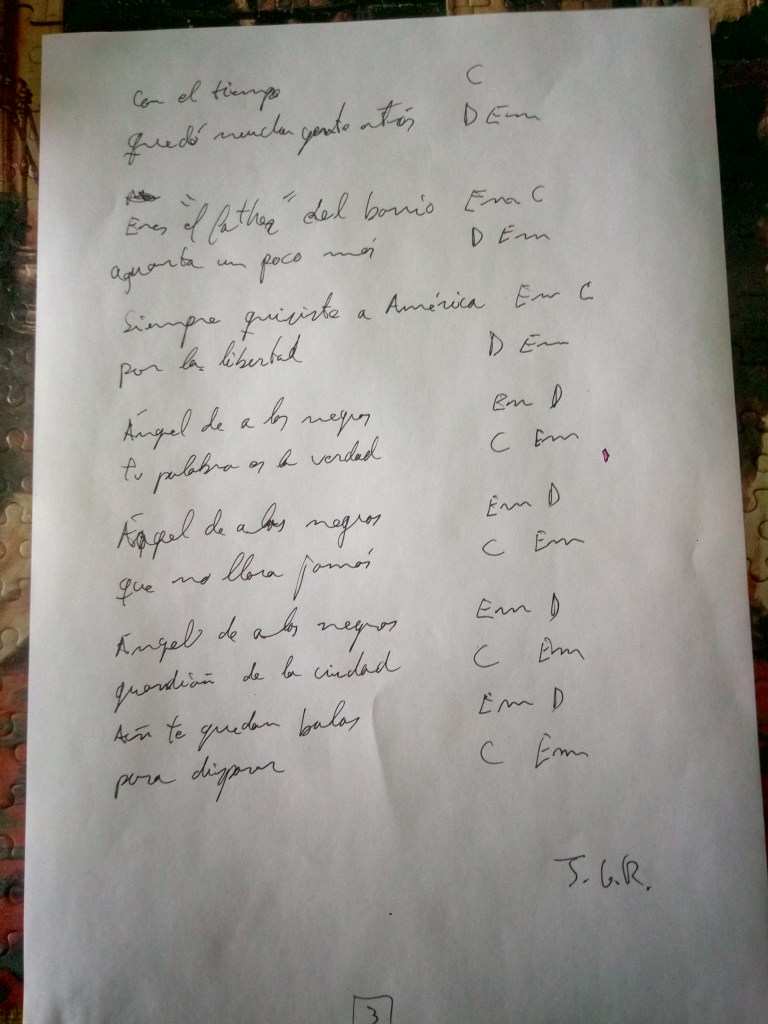 Con el tiempo C
quedó mucha gente atrás D Em
Eres "el father" del barrio Em C
aguanta un poco más D Em
Siempre quisiste a América Em C
por la libertad D Em
Ángel de alas negras Em D
tu palabra es la verdad C Em
Ángel de alas negras Em D
que no llora jamás C Em
Ángel de alas negras Em D
guardián de la ciudad C Em
Aún te quedan balas Em D
para disparar C Em
J.G.R.
3